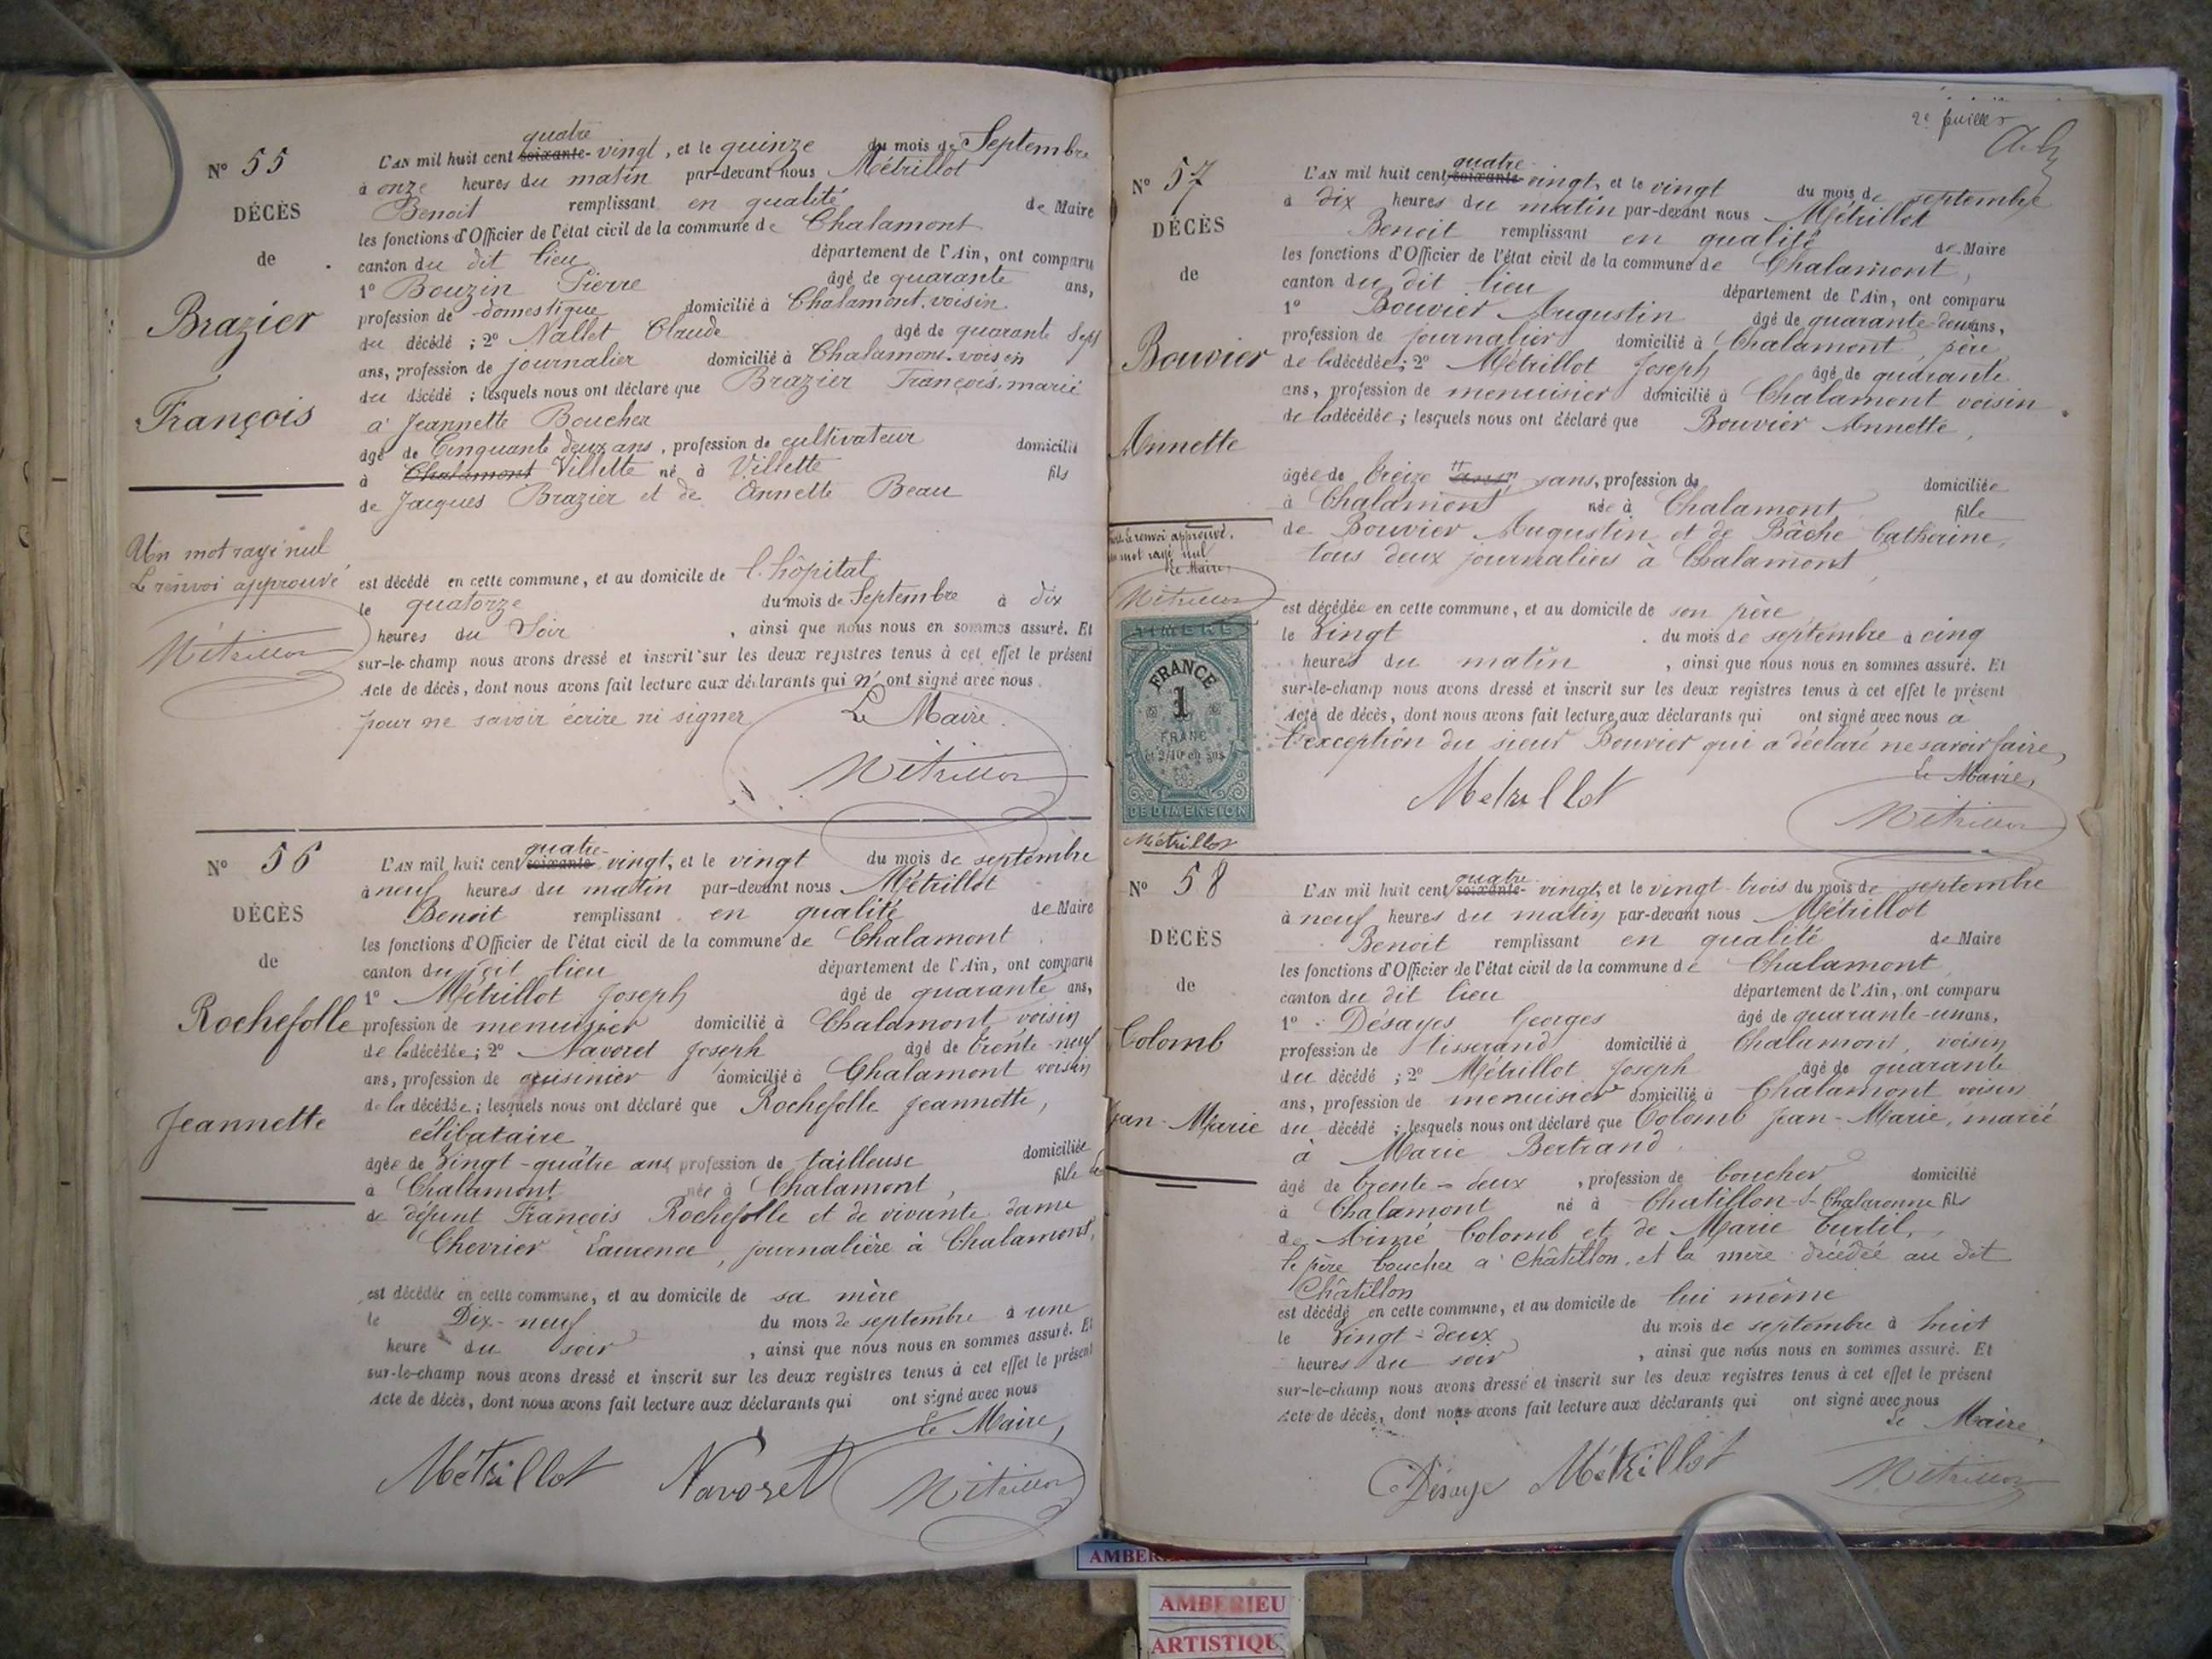 N° 55
DÉCÈS
de
Brazier
François
Un mot rayé nul
Le renvoi approuvé
Métrillot
quatre
L'AN mil huit cent soixante-vingt, et le quinze du mois de Septembre
à onze heures du matin par-devant nous Métrillot
Benoit remplissant en qualité de Maire
les fonctions d'Officier de l'état civil de la commune de Chalamont
canton du dit lieu département de l'Ain, ont comparu
1° Bouzin Pierre âgé de quarante ans,
profession de domestique domicilié à Chalamont, voisin
du décédé ; 2° Nallet Claude âgé de quarante Sept
ans, profession de journalier domicilié à Chalamont, voisin
du décédé ; lesquels nous ont déclaré que Brazier François, marié
à Jeannette Boucher
âgé de Cinquante deux ans, profession de cultivateur domicilié
à Chalamont Villette né à Villette fils
de Jacques Brazier et de Annette Beau
est décédé en cette commune, et au domicile de l'hôpital
le quatorze du mois de Septembre à dix
heures du Soir, ainsi que nous nous en sommes assuré. Et
sur-le-champ nous avons dressé et inscrit sur les deux registres tenus à cet effet le présent
Acte de décès, dont nous avons fait lecture aux déclarants qui n'ont signé avec nous
pour ne savoir écrire ni signer Le Maire.
Métrillot
N° 56
DÉCÈS
de
Rochefolle
Jeannette
quatre-
L'AN mil huit cent soixante vingt, et le vingt du mois de septembre
à neuf heures du matin par-devant nous Métrillot
Benoit remplissant en qualité de Maire
les fonctions d'Officier de l'état civil de la commune de Chalamont
canton du dit lieu département de l'Ain, ont comparu
1° Métrillot Joseph âgé de quarante ans,
profession de menuisier domicilié à Chalamont voisin
de la décédée; 2° Navoret Joseph âgé de trente-neuf
ans, profession de cuisinier domicilié à Chalamont voisin
de la décédée; lesquels nous ont déclaré que Rochefolle Jeannette,
célibataire
âgée de vingt-quatre ans profession de tailleuse domiciliée
à Chalamont née à Chalamont, fille de
de défunt François Rochefolle et de vivante dame
Chevrier Laurence, journalière à Chalamont,
est décédée en cette commune, et au domicile de sa mère
le Dix-neuf du mois de septembre à une
heure du soir, ainsi que nous nous en sommes assuré. Et
sur-le-champ nous avons dressé et inscrit sur les deux registres tenus à cet effet le présent
Acte de décès, dont nous avons fait lecture aux déclarants qui ont signé avec nous
Le Maire,
Métrillot Navoret Métrillot
2e feuille
N° 57
DÉCÈS
de
Bouvier
Annette
renvoi approuvé,
mot rayé nul
Le Maire,
Métrillot
TIMBRE
FRANCE
1
FRANC
et 2/10 en sus
DE DIMENSION
Métrillot
quatre-
L'AN mil huit cent soixante vingt, et le vingt du mois de septembre
à dix heures du matin par-devant nous Métrillot
Benoit remplissant en qualité de Maire
les fonctions d'Officier de l'état civil de la commune de Chalamont,
canton du dit lieu département de l'Ain, ont comparu
1° Bouvier Augustin âgé de quarante-deux ans,
profession de journalier domicilié à Chalamont, père
de la décédée; 2° Métrillot Joseph âgé de quarante
ans, profession de menuisier domicilié à Chalamont voisin
de la décédée; lesquels nous ont déclaré que Bouvier Annette,
âgée de treize ans, profession de domiciliée
à Chalamont née à Chalamont fille
de Bouvier Augustin et de Bâche Catherine,
tous deux journaliers à Chalamont,
est décédée en cette commune, et au domicile de son père
le vingt du mois de septembre à cinq
heures du matin, ainsi que nous nous en sommes assuré. Et
sur-le-champ nous avons dressé et inscrit sur les deux registres tenus à cet effet le présent
Acte de décès, dont nous avons fait lecture aux déclarants qui ont signé avec nous à
l'exception du sieur Bouvier qui a déclaré ne savoir faire,
Le Maire,
Metrillot Métrillot
N° 58
DÉCÈS
de
Colomb
Jean-Marie
quatre-
L'AN mil huit cent soixante-vingt, et le vingt-trois du mois de septembre
à neuf heures du matin par-devant nous Métrillot
Benoit remplissant en qualité de Maire
les fonctions d'Officier de l'état civil de la commune de Chalamont,
canton du dit lieu département de l'Ain, ont comparu
1° Désayes Georges âgé de quarante-un ans,
profession de tisserand domicilié à Chalamont, voisin
du décédé ; 2° Métrillot Joseph âgé de quarante
ans, profession de menuisier domicilié à Chalamont voisin
du décédé ; lesquels nous ont déclaré que Colomb Jean-Marie, marié
à Marie Bertrand
âgé de trente-deux, profession de boucher domicilié
à Chalamont né à Chatillon-s-Chalaronne fils
de Aimé Colomb et de Marie Curtil,
le père boucher à Châtillon, et la mère décédée au dit
Châtillon
est décédé en cette commune, et au domicile de lui même
le vingt-deux du mois de septembre à huit
heures du soir, ainsi que nous nous en sommes assuré. Et
sur-le-champ nous avons dressé et inscrit sur les deux registres tenus à cet effet le présent
Acte de décès, dont nous avons fait lecture aux déclarants qui ont signé avec nous
Le Maire,
Désaye Métrillot Métrillot
AMBERIEU
ARTISTIQU